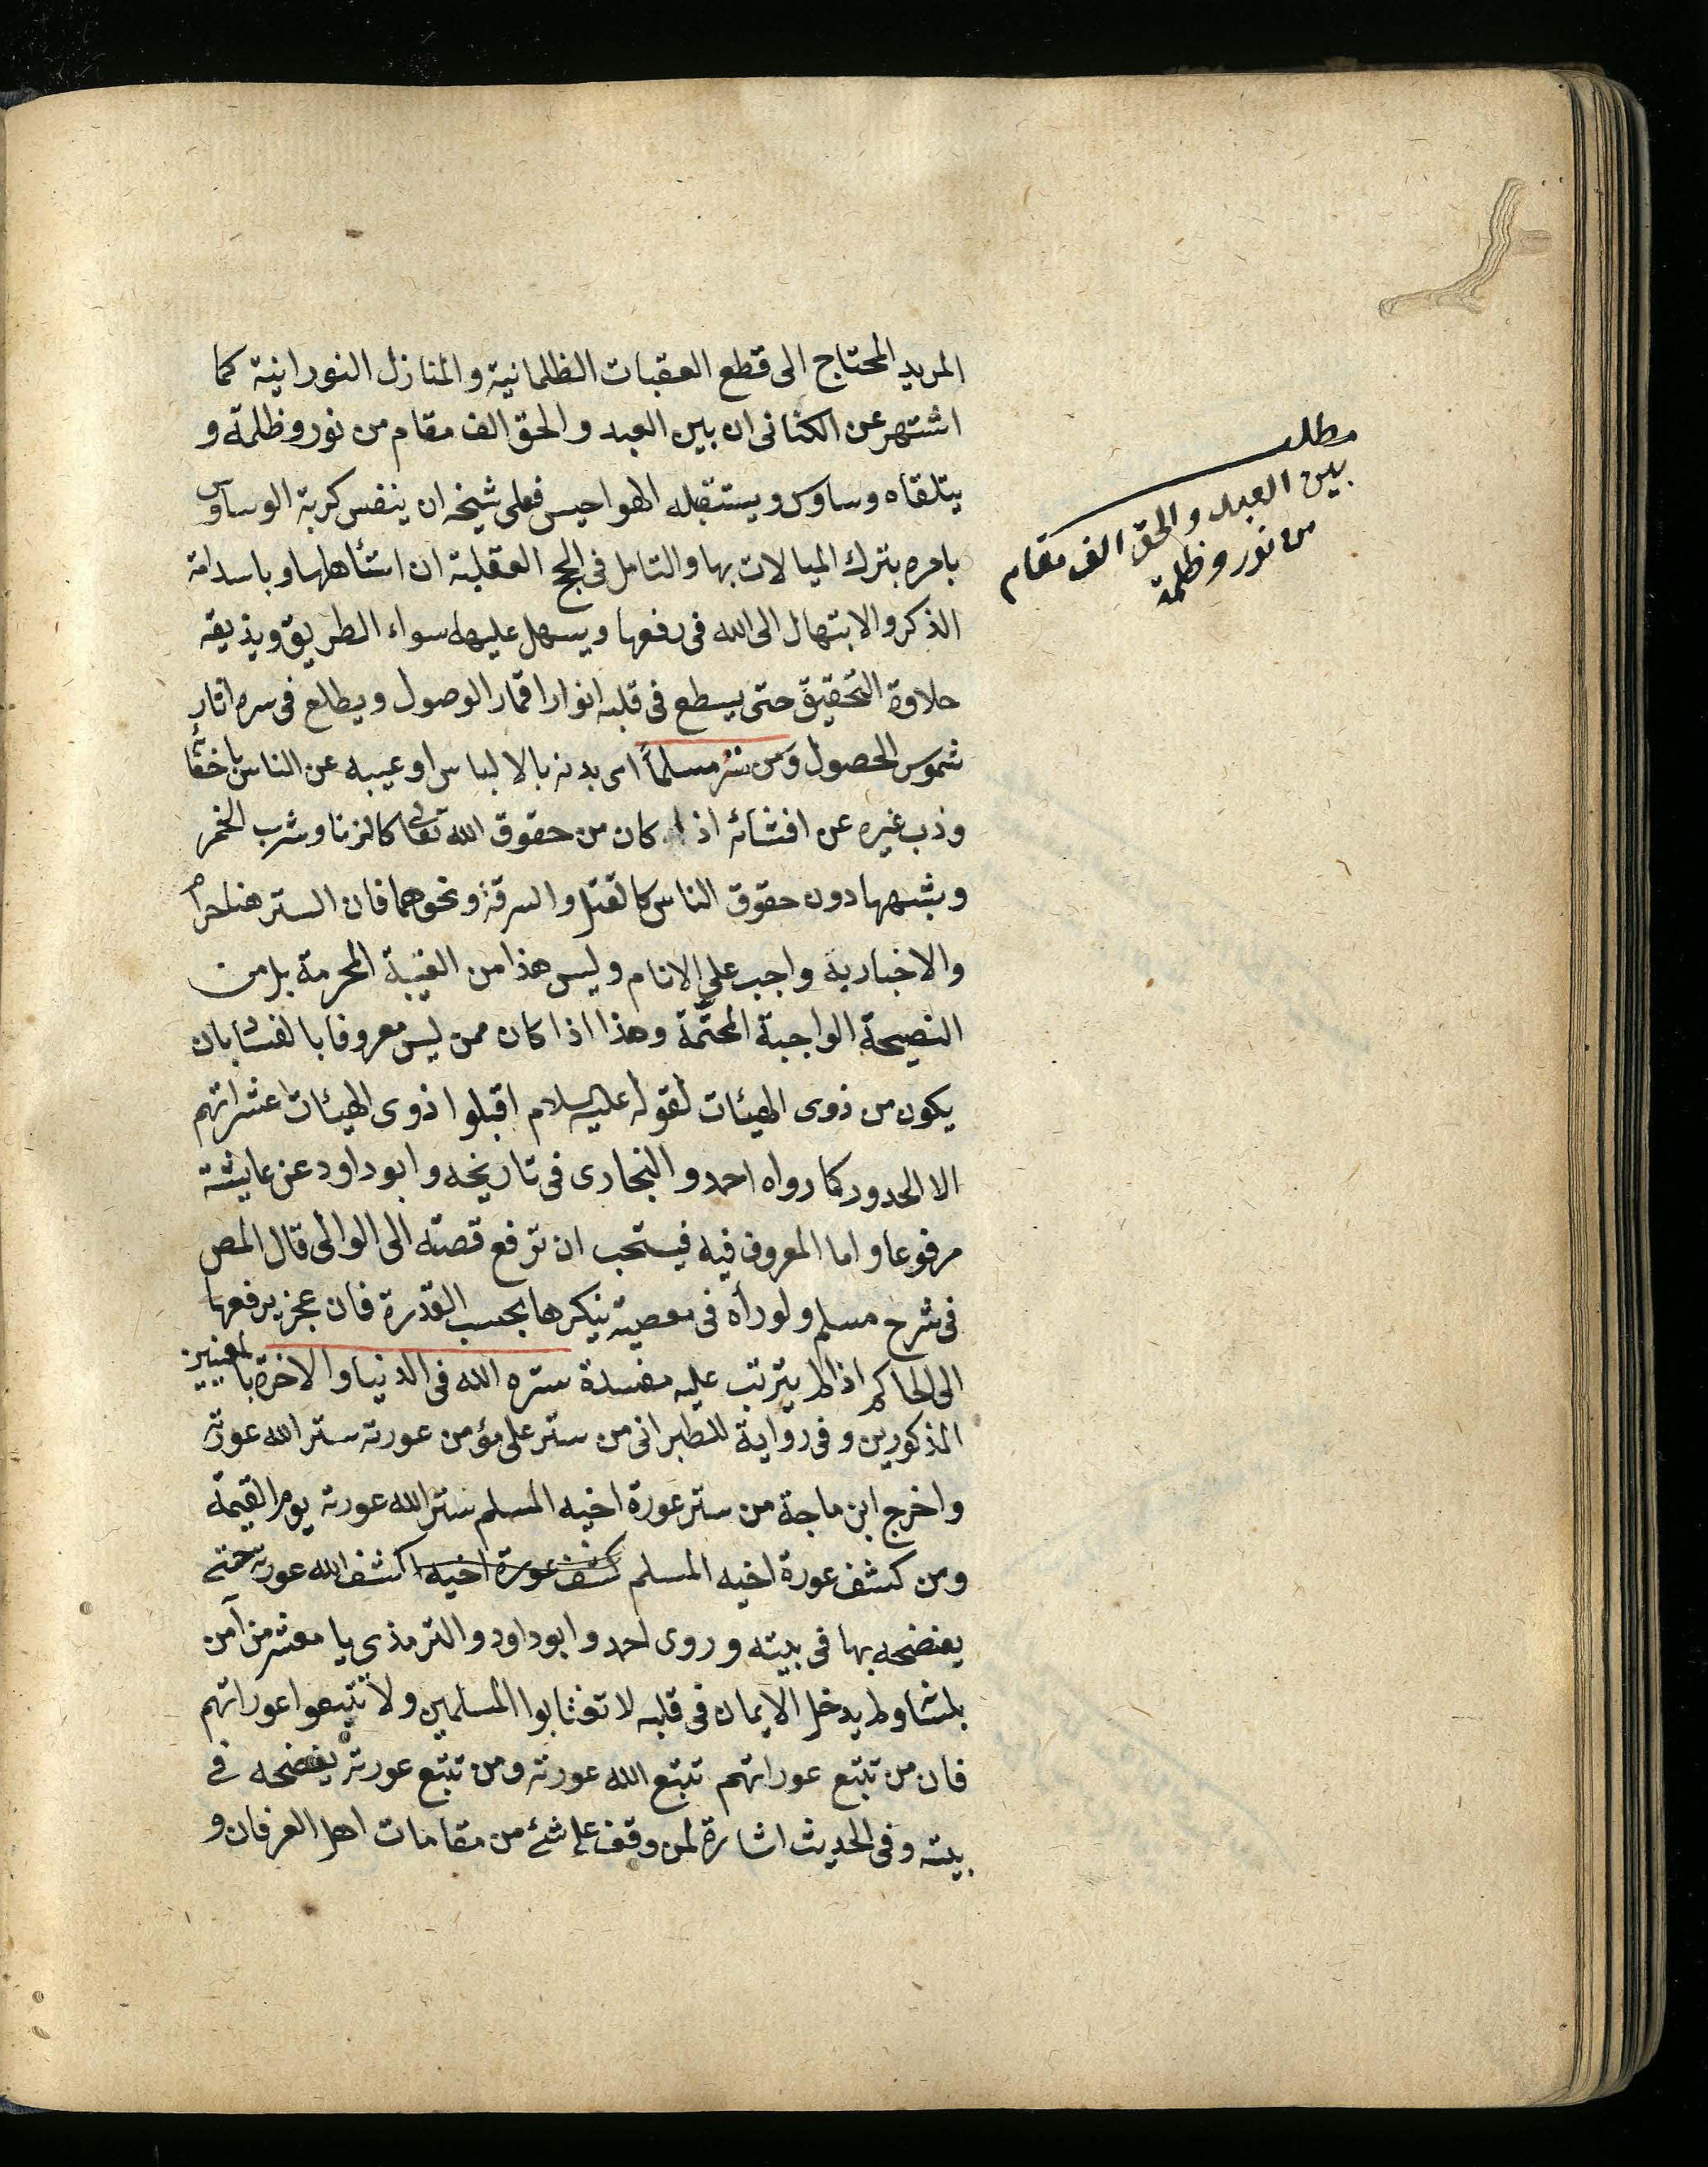 المريد المحتاج الى قطع العقبات الظلمانية والمنازل النورانية كما
اشتهر عن الكتانى ان بين العبد والحق الف مقام من نور وظلمة و
يتلقاه وساوس ويستقبله الهواجيس فعلى شيخه ان ينفس كربة الوساوس
بامره بترك المبالات بها والتامل فى الحجج العقلية ان استأهلها وباستدامة
الذكر والابتهال الى الله فى رفعها ويسهل عليه سواء الطريق ويذيقه
حلاوة التحقيق حتى يسطع فى قلبه انوار اقمار الوصول ويطلع فى سره اثار
شموس الحصول ومن ستر مسلماً اى بدنه بالالباس او عيبه عن الناس باخفائه
وذب غيره عن افشائه اذا كان من حقوق الله تعالى كالزنا وشرب الخمر
وشبهها دون حقوق الناس كالقتل والسرقة ونحوهما فان الستر هنا حرام
والاخبار به واجب على الانام وليس هذا من الغيبة المحرمة بل من
النصيحة الواجبة المحتمّة وهذا اذا كان ممن ليس معروفا بالفساد بان
يكون من ذوى الهيئات لقوله عليه السلام اقيلوا ذوى الهيئات عثراتهم
الا الحدود كما رواه احمد والبخارى فى تاريخه وابو داود عن عايشة
مرفوعا واما المعروف فيه فيستحب ان ترفع قصته الى الوالى قال المص
فى شرح مسلم ولو رأه فى معصية ينكرها بحسب القدرة فان عجز يرفعها
الى الحاكم اذا لم يترتب عليه مفسدة ستره الله فى الدنيا والاخرة بالمعنيين
المذكورين وفى رواية للطبرانى من ستر على مؤمن عورته ستر الله عورته
واخرج ابن ماجة من ستر عورة اخيه المسلم ستر الله عورته يوم القيمة
ومن كشف عورة اخيه المسلم كشف عورة اخيه كشف الله عورته حتى
يفضحه بها فى بيته وروى احمد وابو داود والترمذى يا معشر من آمن
بلسانه ولم يدخل الايمان فى قلبه لا تغتابوا المسلمين ولا تتبعوا عوراتهم
فان من تتبع عوراتهم تتبع الله عورته ومن تتبع عورته يفضحه فى
بيته وفى الحديث اشارة لمن وقف على شئ من مقامات اهل العرفان و
مطلب
بين العبد والحق الف مقام
من نور وظلمة